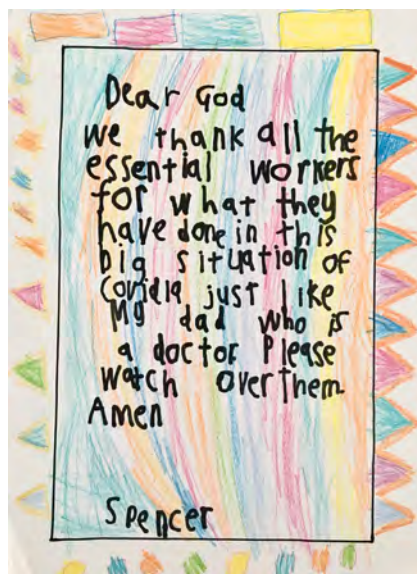 Dear God
we thank all the
essential workers
for what they
have done in this
big situation of
Covid19 just like
My dad who is
a doctor Please
watch over Them
Amen
Spencer